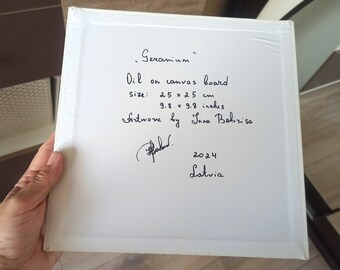 „Geranium"
Oil on canvas board
size: 25 x 25 cm
9.8 x 9.8 inches
Artwork by Inna
2024
Latvia